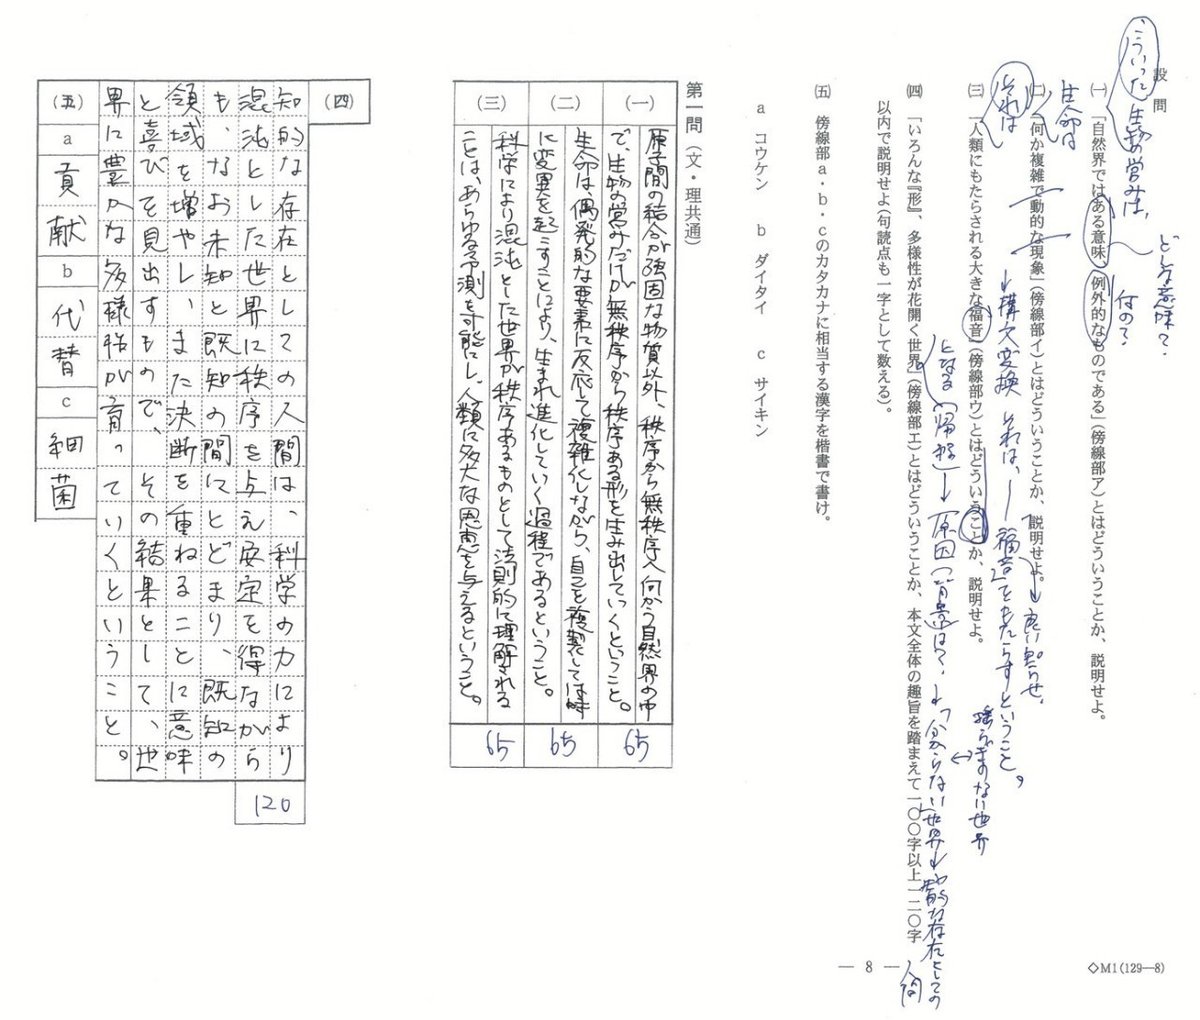 設問
こういった生物の営みは、
どんな意味?
何の?
(一)「自然界ではある意味、例外的なものである」(傍線部ア)とはどういうことか、説明せよ。
生命は
(二)「何か複雑で動的な現象」(傍線部イ)とはどういうことか、説明せよ。
それは
(三)「人類にもたらされる大きな福音」(傍線部ウ)とはどういうことか、説明せよ。
→構文変換 それは、―福音をもたらすということ。
→良い知らせ、
揺らぎのない世界
となる(帰結)→原因(背景)は?→「分からない世界→知的な存在としての人間
(四)「いろんな『形』、多様性が花開く世界」(傍線部エ)とはどういうことか、本文全体の趣旨を踏まえて一〇〇字以上一二〇字
以内で説明せよ(句読点も一字として数える)。
(五) 傍線部a・b・cのカタカナに相当する漢字を楷書で書け。
a コウケン b ダイタイ c サイキン
第一問(文・理共通)
(一)
原子間の結合が強固な物質以外、秩序から無秩序へ向かう自然界の中
で、生物の営みだけが無秩序から秩序ある形を生み出していくということ。
65
(二)
生命は偶発的な要素に反応して複雑化しながら、自己を複製しては時
に変異を起こすことにより、生まれ進化していく過程であるということ。
65
(三)
科学により混沌とした世界が秩序あるものとして法則的に理解される
ことは、あらゆる予測を可能にし、人類に多大な恩恵を与えるということ。
65
(四)
知的な存在としての人間は、科学の力により
混沌とした世界に秩序を与え安定を得ながら
も、なお未知と既知の間にとどまり、既知の
領域を増やし、また決断を重ねることに意味
と喜びを見出すもので、その結果として、世
界に豊かな多様性が育っていくということ。
120
(五)
a
貢献
b
代替
c
細菌
— 8 —
◇M1(129—8)